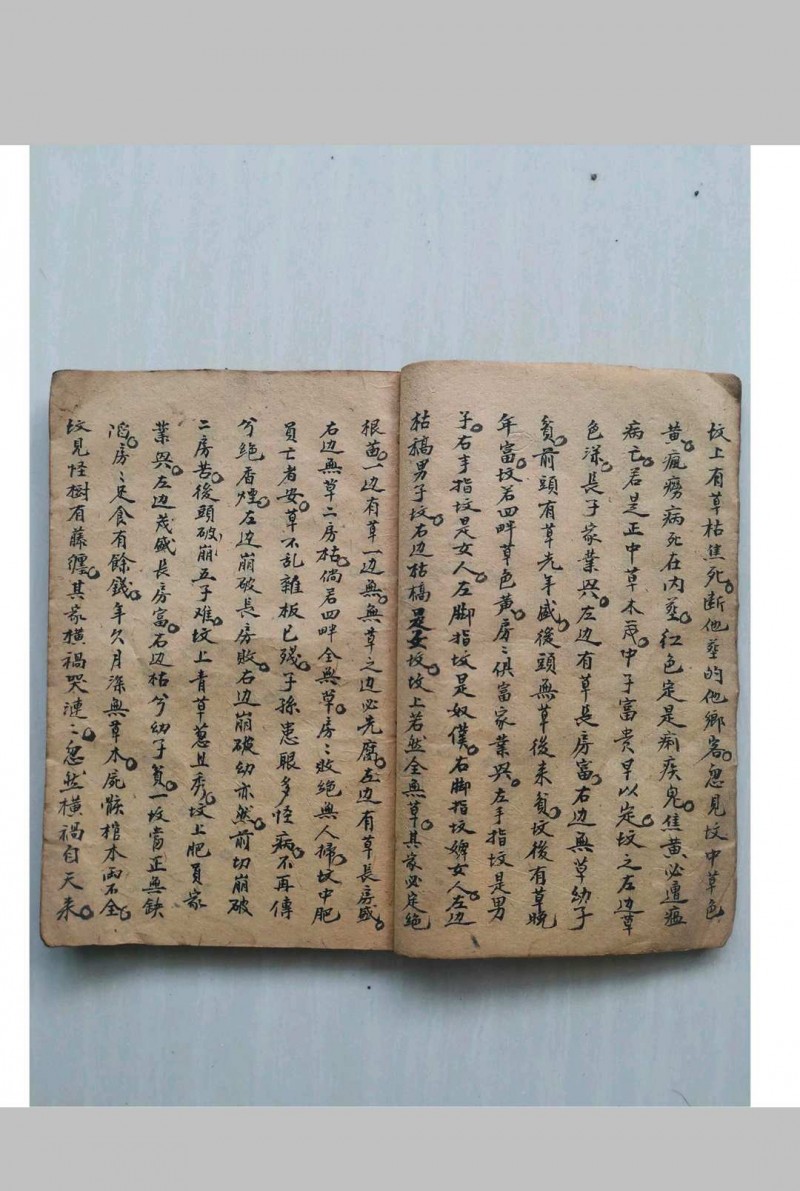 坟上有草枯焦死。断他塟的他鄉客。忽見坟中草色
黄。瘋癆病死在内塟。紅色定是痢疾鬼。焦黄必遭瘟
病亡。若是正中草木茂。中子富貴早以定。坟之左边草
色深。長子家業興。左边有草長房富。右边無草幼子
貧。前頭有草先年盛。後頭無草後来貧。坟後有草晚
年富。坟若四畔草色黄。房〻俱富家業興。左手指坟是男
子。右手指坟是女人。左脚指坟是奴僕。右脚指坟婢女人。左边
枯槁男子坟。右边枯槁是女坟。坟上若然全無草。其家必定絶
根苗。一边有草一边無。無草之边必先腐。左边有草長房盛。
右边無草二房枯。倘若四畔全無草。房〻敗絶無人掃。坟中肥
員亡者安。草不乱雜板已殘。子孫患眼多怪病。不再傳
兮絶香煙。左边崩破長房敗。右边崩破幼亦然。前切崩破
二房苦。後頭破崩五子难。坟上青草葱且秀。坟上肥員家
業興。左边茂盛長房富。右边枯兮幼子貧。一坟當正無缺
陷。房〻足食有餘錢。年久月深無草木。屍骸棺木両不全。
坟見怪樹有藤纒。其家横禍哭漣〻。忽然横禍自天来。